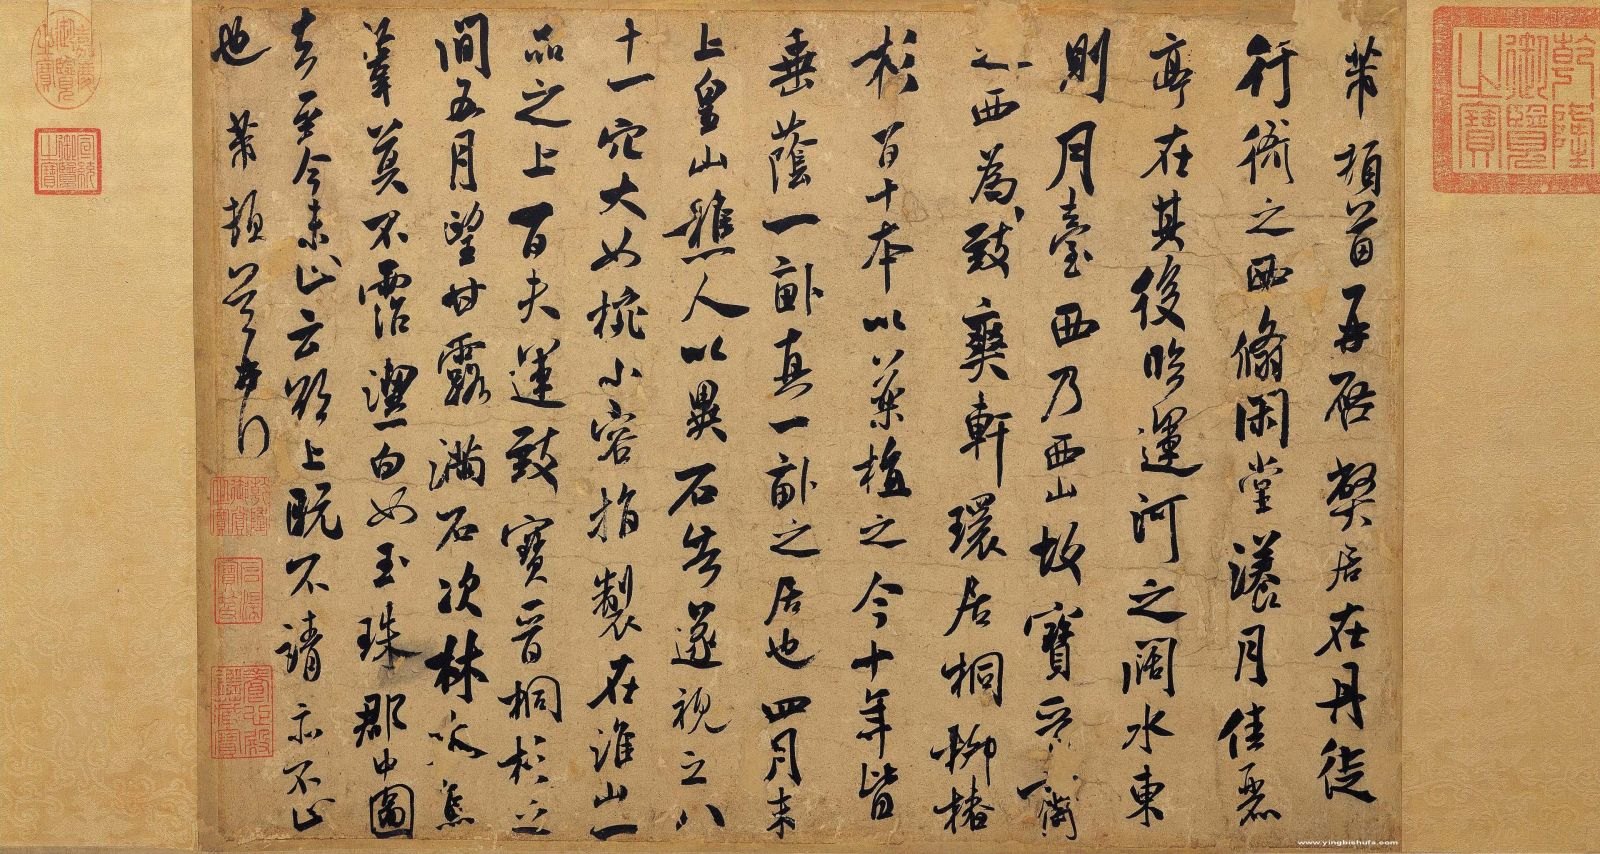 乾隆御覽之寶
芾頓首再啓弊居在丹徒
行衙之西翛閑堂漾月佳麗
亭在其後臨運河之闊水東
則月臺西乃西山故寶晉齋
之西為致爽軒環居桐柳椿
杉百十本以藥植之今十年皆
垂蔭一畝真一畝之居也四月末
上皇山樵人以異石告遂視之八
十一穴大如椀小容指製在淮山一
品之上百夫運致寶晉桐杉之
間五月望甘露滿石次林
葦莫不霑潔白如玉珠郡中圖
去至今未止云欲上既不請亦不止
也 芾頓首
石渠寶笈
養心殿鑑藏寶
嘉慶御覽之寶
宣統御覽之寶
www.yingbishufa.com